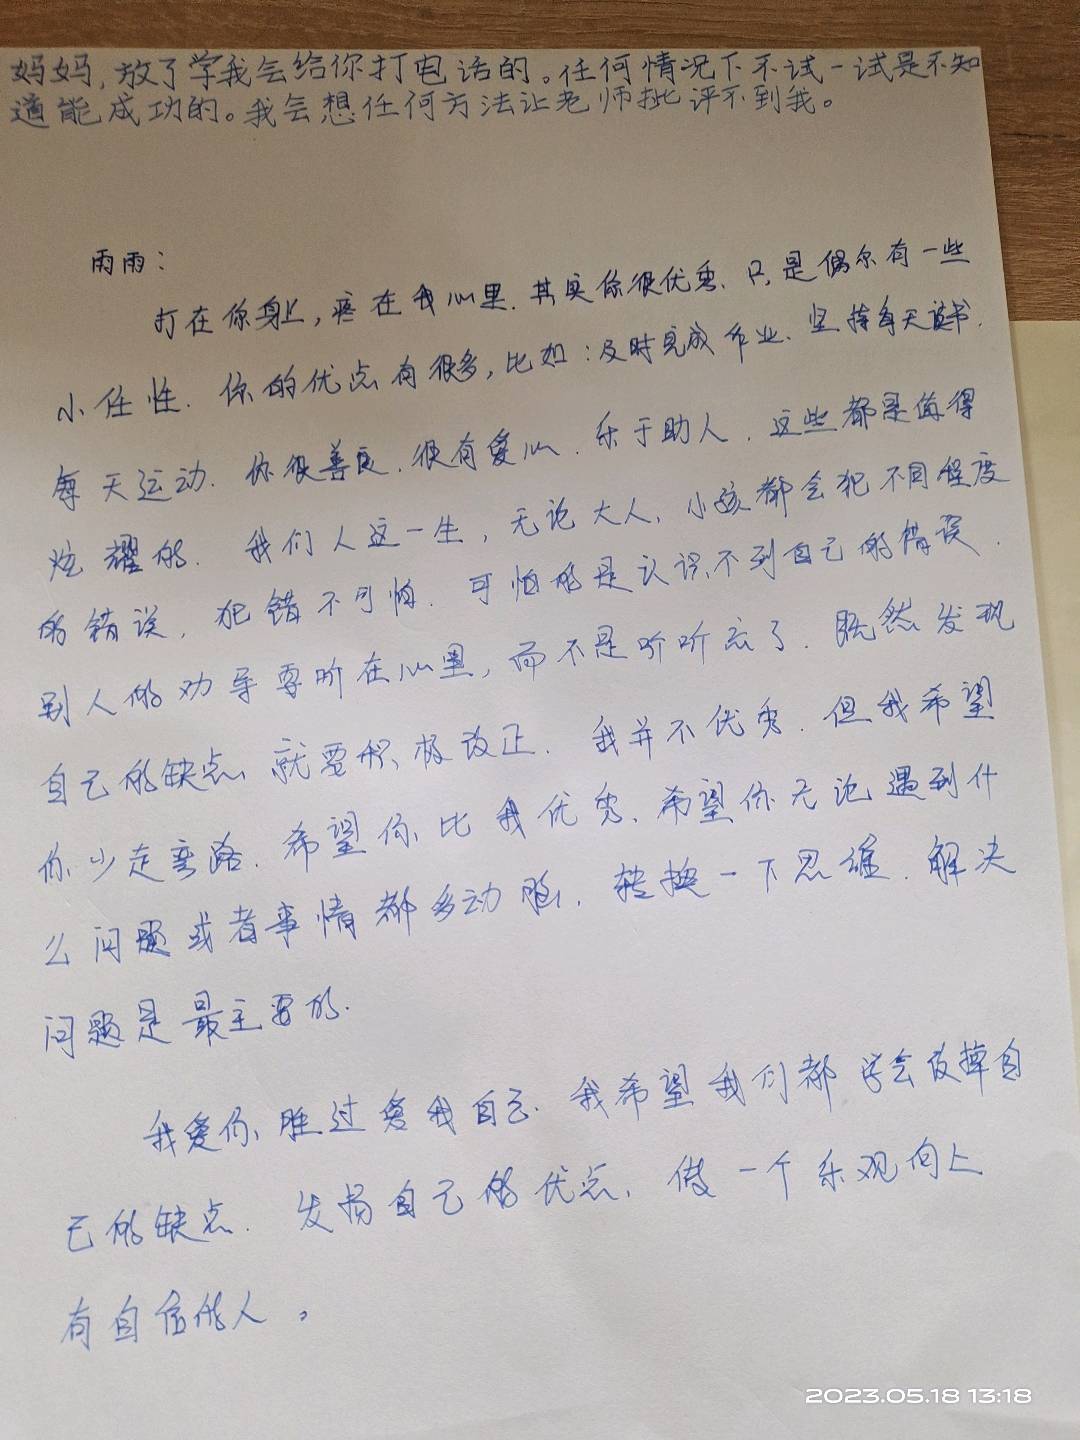 妈妈，放了学我会给你打电话的。任何情况下不试一试是不知
道能成功的。我会想任何方法让老师批评不到我。
雨雨：
打在你身上，疼在我心里.其实你很优秀.只是偶尔有一些
小任性.你的优点有很多，比如：及时完成作业.坚持每天读书.
每天运动.你很善良.很有爱心.乐于助人.这些都是值得
炫耀的.我们人这一生，无论大人、小孩都会犯不同程度
的错误，犯错不可怕.可怕的是认识不到自己的错误.
别人的劝导要听在心里，而不是听听就算了.既然发现
自己的缺点、就要积极改正.我并不优秀.但我希望
你少走弯路.希望你比我优秀、希望你无论遇到什
么问题或者事情都多动脑，转换一下思维.解决
问题是最主要的.
我爱你、胜过爱我自己.我希望我们都学会改掉自
己的缺点.发扬自己的优点，做一个乐观向上
有自信的人。
2023.05.18 13:18